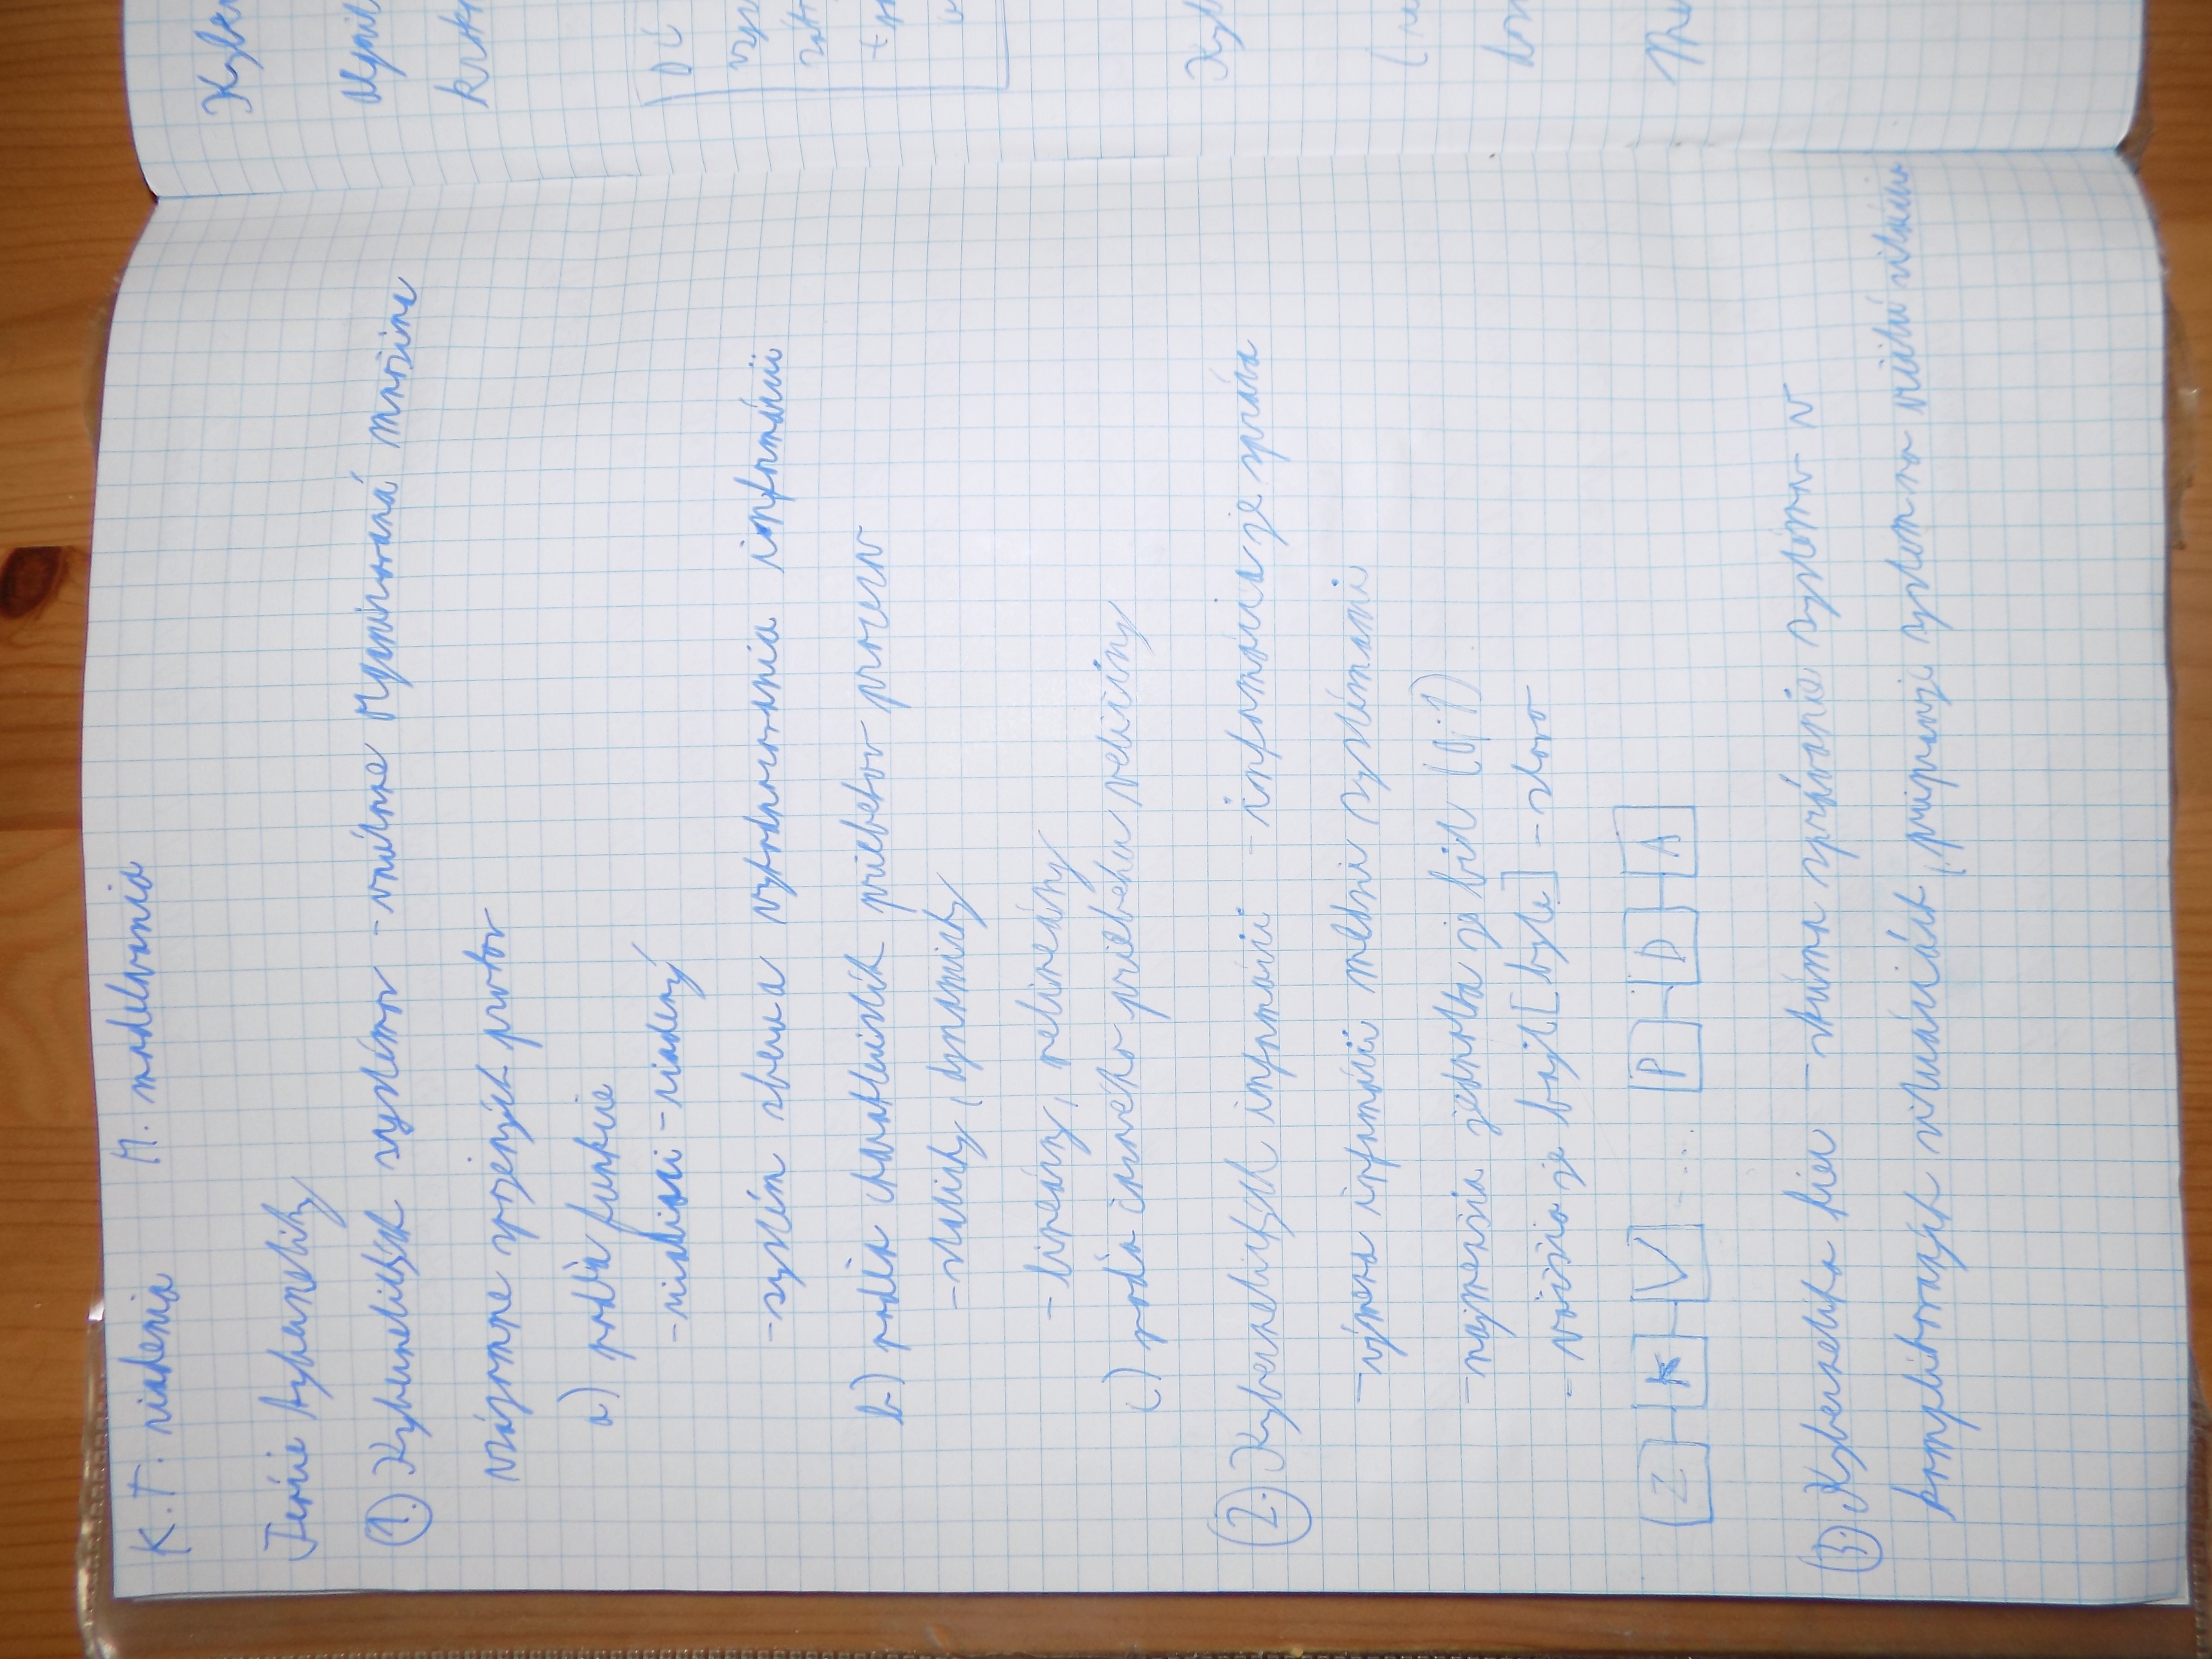 K. T. riadenia M. modelovania
Teórie kybernetiky
1. Kybernetických systémov - vnútorne organizovaná množina
vzájomne spojených prvkov
a) podľa funkcie
- riadiaci - riadený
- systém zberu a vyhodnocovania informácií
b) podľa charakteristík priebehov procesov
- statický, dynamický
- lineárny, nelineárny
c) podľa časového priebehu veličiny
2. Kybernetických informácií - informácia je správa
- výmena informácií medzi systémami
- najmenšia jednotka je bit (0;1)
- väčšia je bajt [byte] - slovo
Z K V ... P D A
3. Kybernetika hier - skúma správanie systémov v
konfliktových situáciách, pripravuje systém na
Kyber